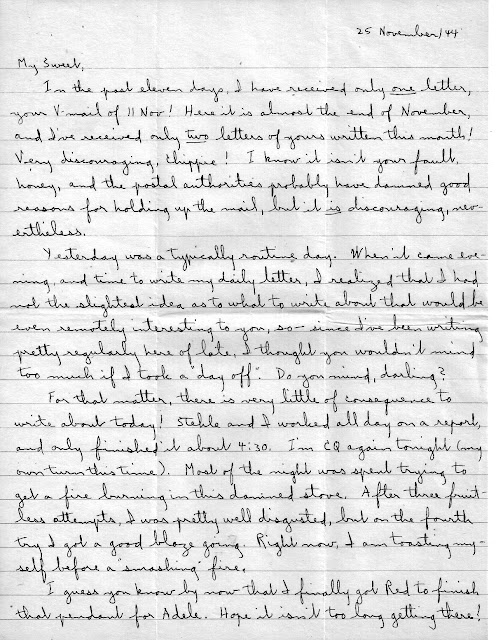 25 November/44
My Sweet,
In the past eleven days, I have received only one letter,
your V-mail of 11 Nov! Here it is almost the end of November,
and I've received only two letters of yours written this month!
Very discouraging, Chippie! I know it isn't your fault,
honey, and the postal authorities probably have damned good
reasons for holding up the mail, but it is discouraging, nev-
ertheless.
Yesterday was a typically routine day. When it came eve-
ning, and time to write my daily letter, I realized that I had
not the slightest idea as to what to write about that would be
even remotely interesting to you, so— since I've been writing
pretty regularly here of late, I thought you wouldn't mind
too much if I took a "day off". Do you mind, darling?
For that matter, there is very little of consequence to
write about today! Stehle and I worked all day on a report,
and only finished it about 4:30. I'm CQ again tonight (my
own turn this time). Most of the night was spent trying to
get a fire burning in this damned stove. After three fruit-
less attempts, I was pretty well disgusted, but on the fourth
try I got a good blaze going. Right now, I am toasting my-
self before a "smashing" fire.
I guess you know by now that I finally got Red to finish
that pendant for Adele. Hope it isn't too long getting there!